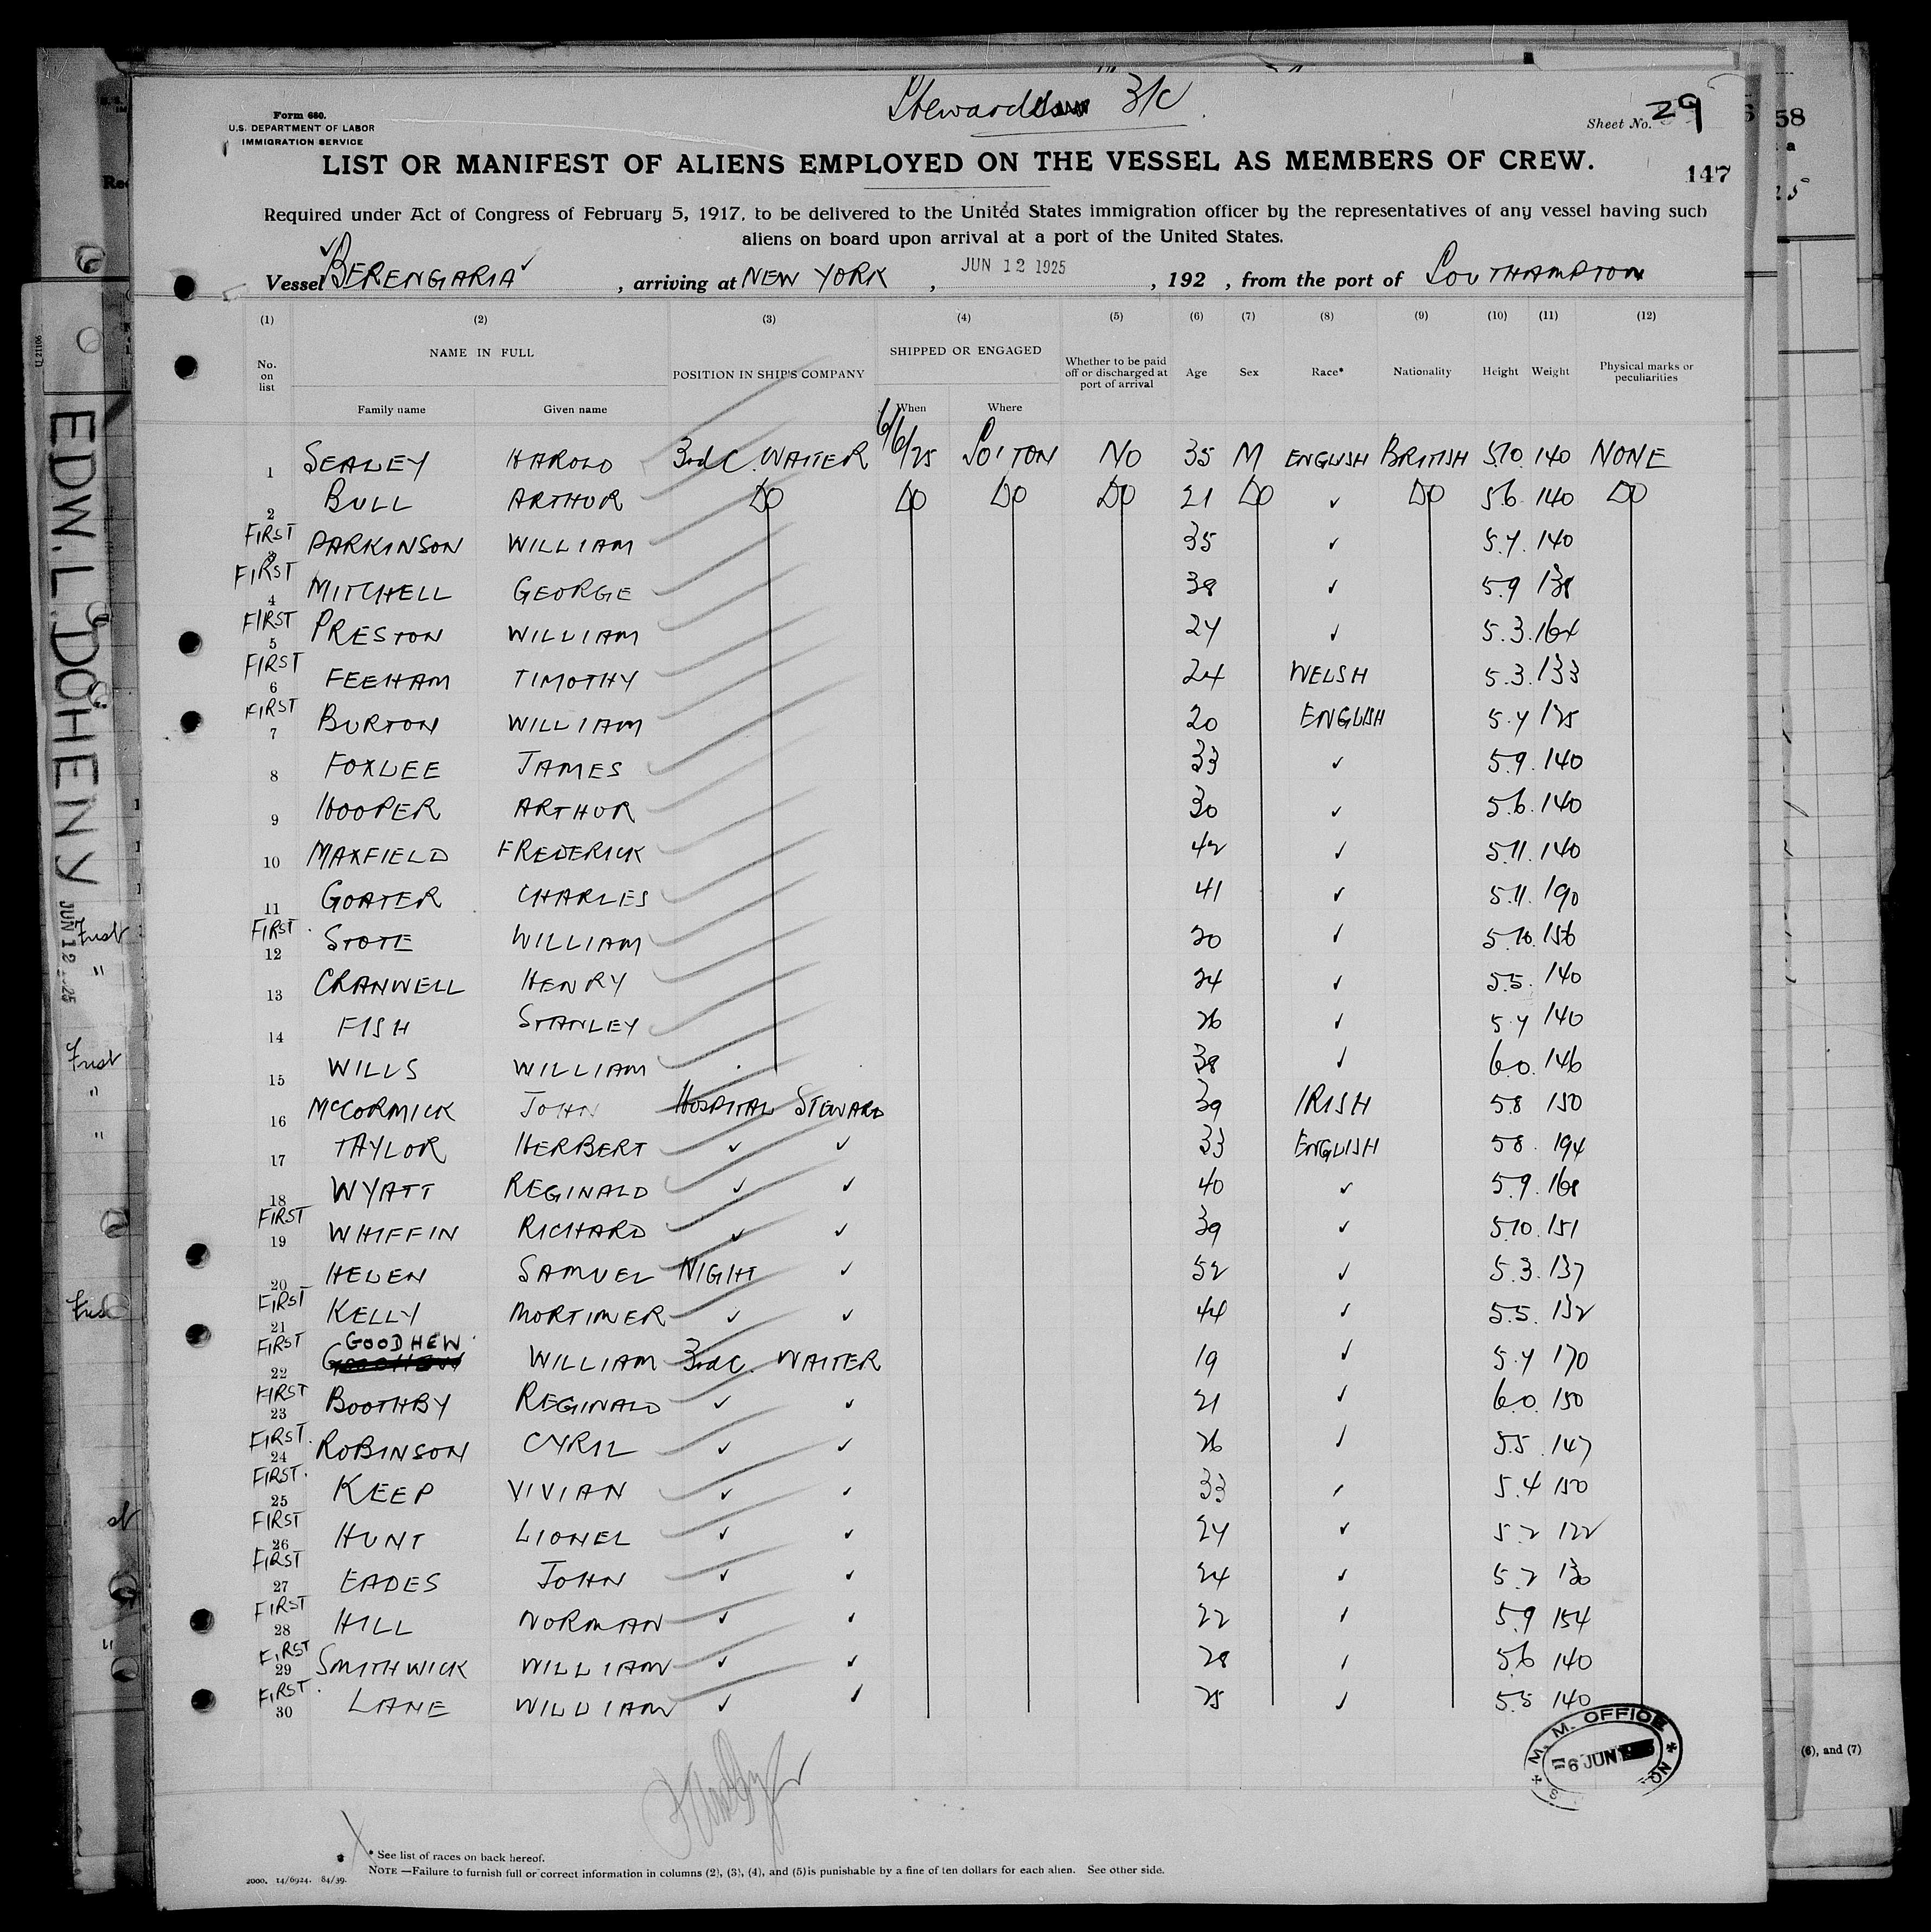 Stewards 3/c.
Form 680.
U.S. DEPARTMENT OF LABOR
IMMIGRATION SERVICE
Sheet No. 29
LIST OR MANIFEST OF ALIENS EMPLOYED ON THE VESSEL AS MEMBERS OF CREW.
147
Required under Act of Congress of February 5, 1917, to be delivered to the United States immigration officer by the representatives of any vessel having such
aliens on board upon arrival at a port of the United States.
Vessel BERENGARIA, arriving at NEW YORK, JUN 12 1925, 192 , from the port of SOUTHAMPTON
(1) (2) (3) (4) (5) (6) (7) (8) (9) (10) (11) (12)
No. on list NAME IN FULL POSITION IN SHIP'S COMPANY SHIPPED OR ENGAGED Whether to be paid off or discharged at port of arrival Age Sex Race* Nationality Height Weight Physical marks or peculiarities
Family name Given name When Where
1 SEALEY HAROLD 3rd C. WAITER 6/6/25 SO'TON NO 35 M ENGLISH BRITISH 5.10. 140 NONE
2 BULL ARTHUR DO DO DO DO 21 DO ✓ DO 5.6. 140 DO
FIRST 3 PARKINSON WILLIAM 35 ✓ 5.7. 140
FIRST 4 MITCHELL GEORGE 38 ✓ 5.9 138
FIRST 5 PRESTON WILLIAM 27 ✓ 5.3. 164
FIRST 6 FEEHAM TIMOTHY 24 WELSH 5.3. 133
FIRST 7 BURTON WILLIAM 20 ENGLISH 5.7 125
8 FOXLEE JAMES 33 ✓ 5.9. 140
9 HOOPER ARTHUR 30 ✓ 5.6. 140
10 MAXFIELD FREDERICK 42 ✓ 5.11. 140
11 GOATER CHARLES 41 ✓ 5.11. 190
FIRST. 12 STOTE WILLIAM 20 ✓ 5.10. 156
13 CRANWELL HENRY 24 ✓ 5.5. 140
14 FISH STANLEY 26 ✓ 5.7 140
15 WILLS WILLIAM 38 ✓ 6.0. 146
16 McCORMICK JOHN HOSPITAL STEWARD 39 IRISH 5.8 150
17 TAYLOR HERBERT ✓ ✓ 33 ENGLISH 5.8. 194
18 WYATT REGINALD ✓ ✓ 40 ✓ 5.9. 168
FIRST 19 WHIFFIN RICHARD ✓ ✓ 39 ✓ 5.10. 151
20 HELEN SAMUEL NIGHT ✓ 52 ✓ 5.3. 137
FIRST 21 KELLY MORTIMER ✓ ✓ 44 ✓ 5.5. 132
FIRST 22 GOODHEW WILLIAM 3rd C. WAITER 19 ✓ 5.7 170
FIRST 23 BOOTHBY REGINALD ✓ ✓ 21 ✓ 6.0. 150
FIRST. 24 ROBINSON CYRIL ✓ ✓ 26 ✓ 5.5. 147
FIRST. 25 KEEP VIVIAN ✓ ✓ 33 ✓ 5.4 150
FIRST 26 HUNT LIONEL ✓ ✓ 27 ✓ 5.2 122
FIRST 27 EADES JOHN ✓ ✓ 24 ✓ 5.2 130
FIRST 28 HILL NORMAN ✓ ✓ 22 ✓ 5.9 154
FIRST 29 SMITHWICK WILLIAM ✓ ✓ 28 ✓ 5.6 140
FIRST. 30 LANE WILLIAM ✓ ✓ 25 ✓ 5.5 140
M. M. OFFICE
6 JUN
* See list of races on back hereof.
NOTE —Failure to furnish full or correct information in columns (2), (3), (4), and (5) is punishable by a fine of ten dollars for each alien. See other side.
2000. 14/6924. 84/39.
EDW. L. DOHENY
JUN 12
U 21106
First
"
First
"
"
58
(6), and (7)